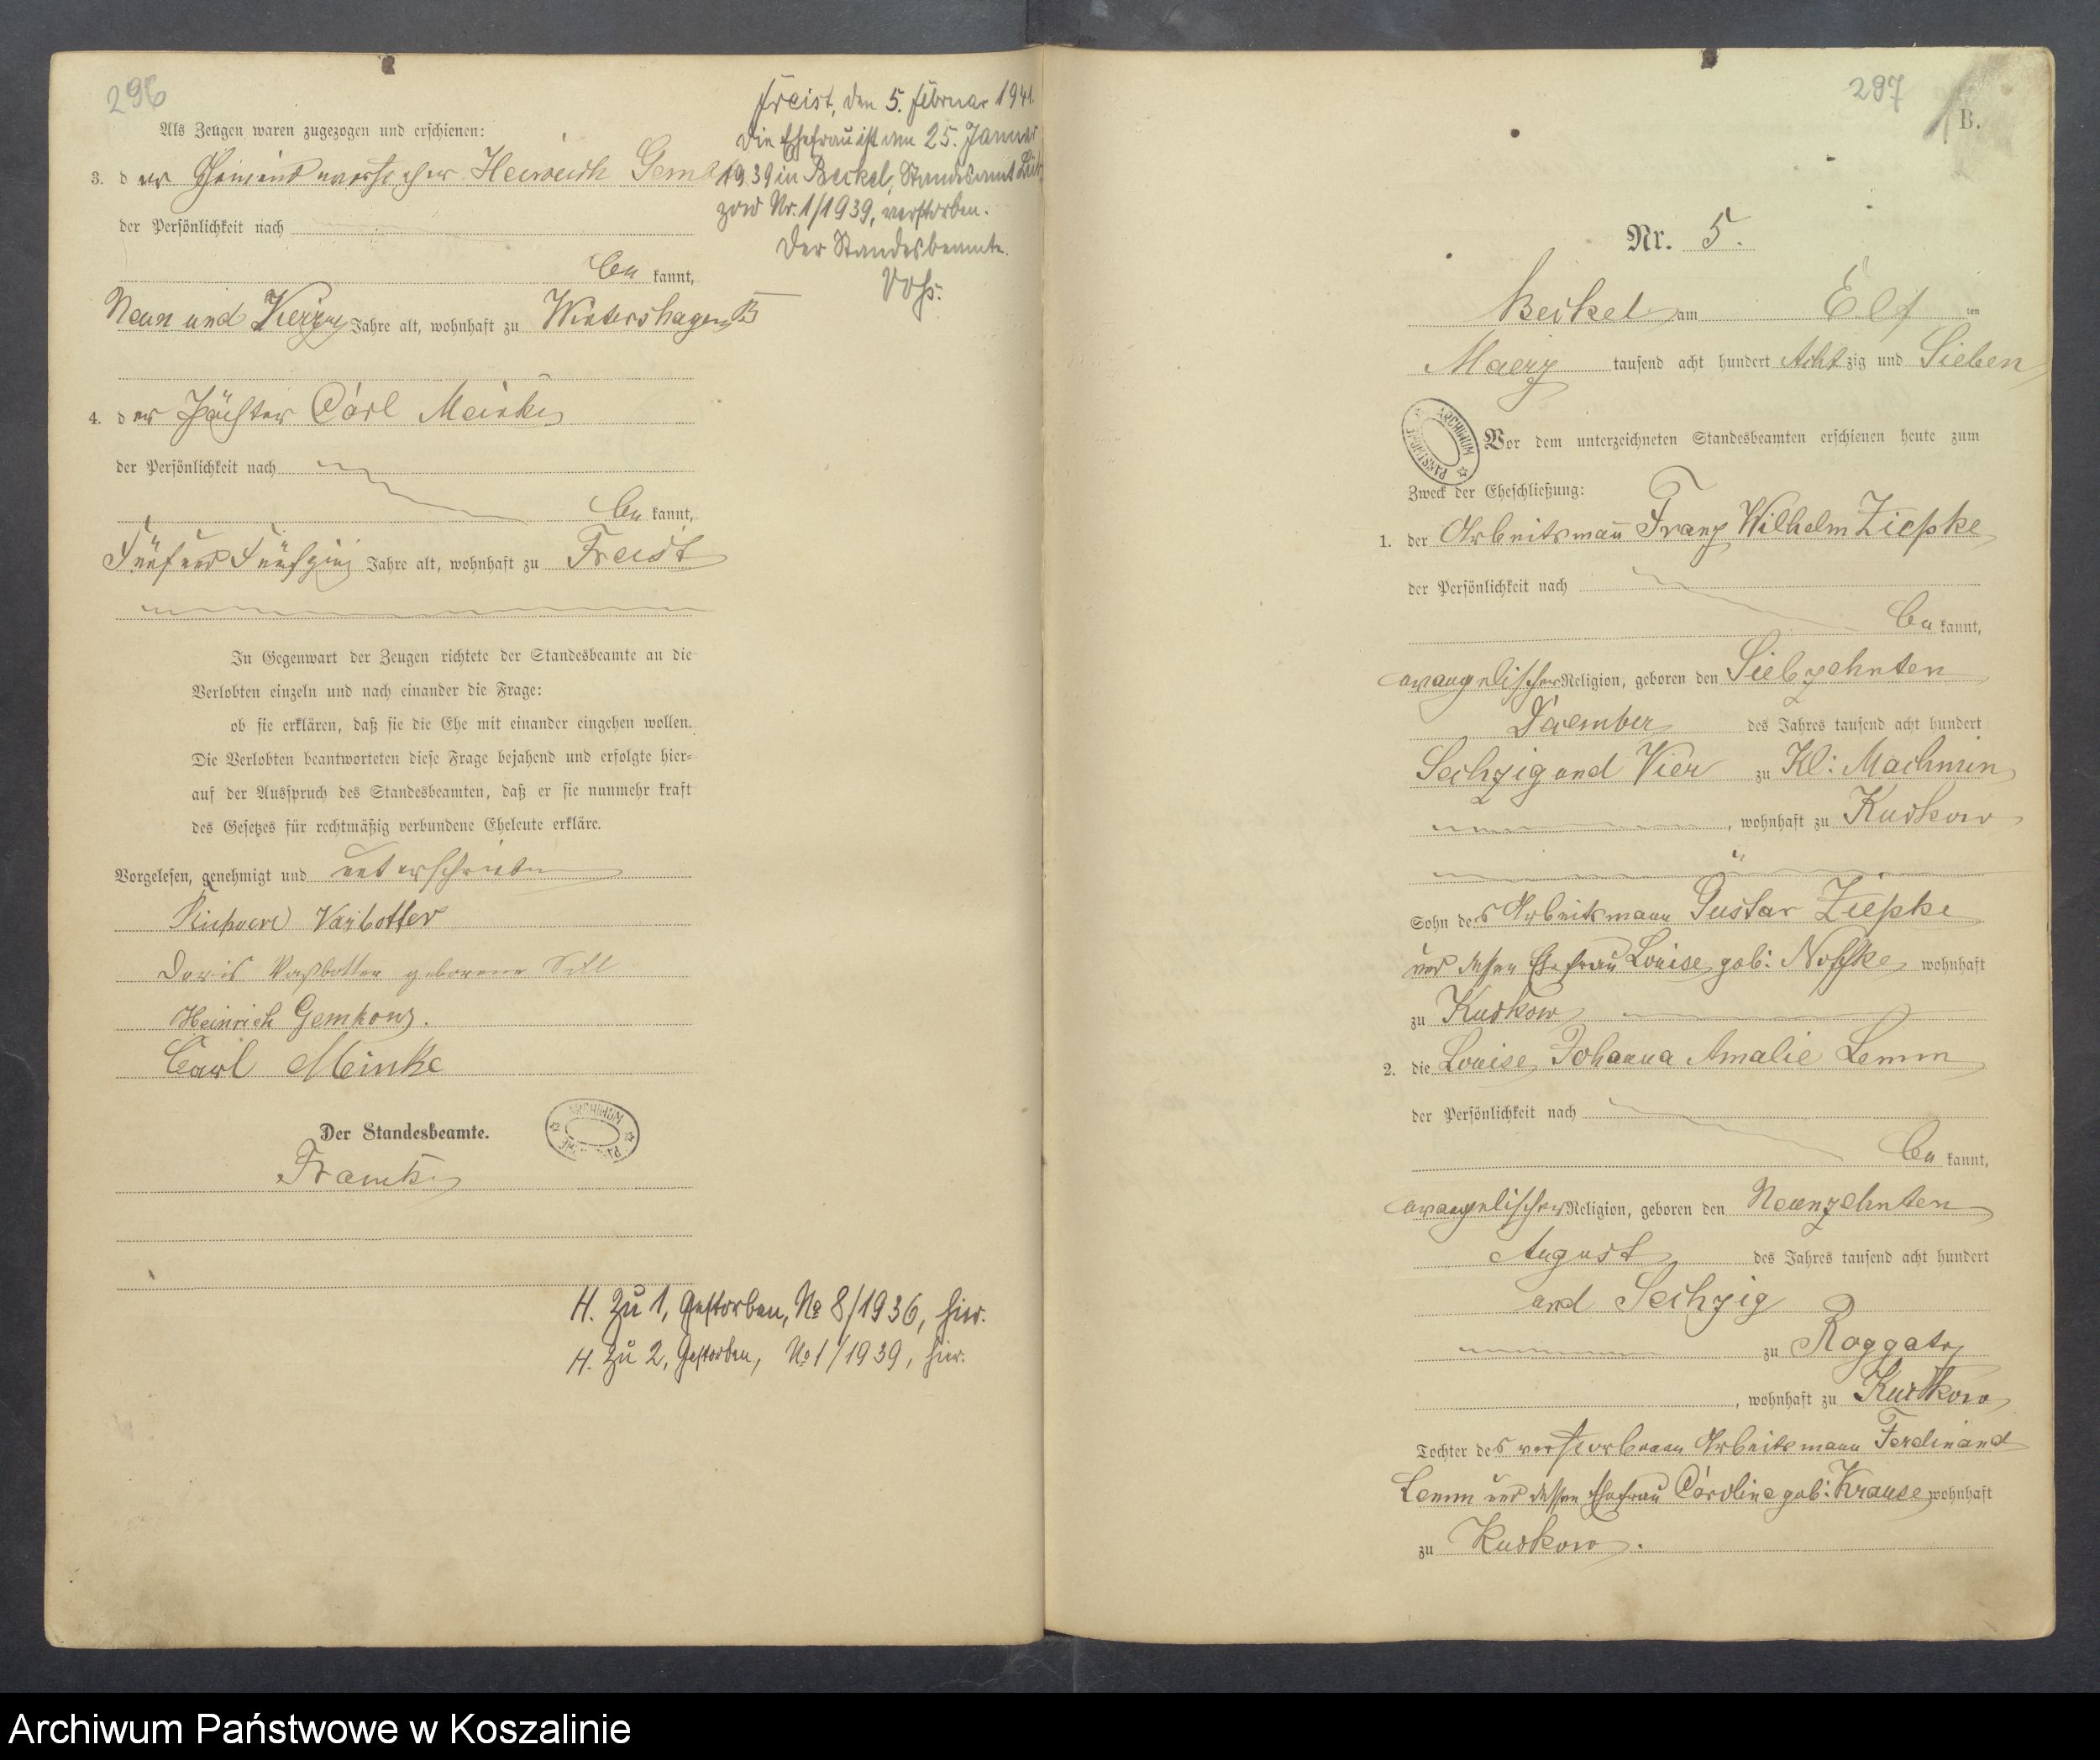 296
Als Zeugen waren zugezogen und erschienen:
3. der Gemeindevorsteher Heinrich
der Persönlichkeit nach
be kannt,
Neun und Vierzig Jahre alt, wohnhaft zu Wintershagen
4. der Pächter Carl Meinke
der Persönlichkeit nach
be kannt,
Fünf und Fünfzig Jahre alt, wohnhaft zu Freist
In Gegenwart der Zeugen richtete der Standesbeamte an die
Verlobten einzeln und nach einander die Frage:
ob sie erklären, daß sie die Ehe mit einander eingehen wollen.
Die Verlobten beantworteten diese Frage bejahend und erfolgte hier-
auf der Ausspruch des Standesbeamten, daß er sie nunmehr kraft
des Gesetzes für rechtmäßig verbundene Eheleute erkläre.
Vorgelesen, genehmigt und unterschrieben
Doris geborene Sill
Heinrich
Carl Meinke
Der Standesbeamte.
ARCHIWUM
Freist, den 5. Februar 1941.
Die Ehefrau ist am 25. Januar
1939 in Beckel, Standesamt Lüt
zow Nr. 1/1939, verstorben.
Der Standesbeamte.
H. Zu 1, Gestorben, No 8/1936, hier.
H. Zu 2, Gestorben, No 1/1939, hier.
297
B.
Nr. 5.
Beckel am Elf ten
Maerz tausend acht hundert Acht zig und Sieben
ARCHIWUM PAŃSTWOWE
Vor dem unterzeichneten Standesbeamten erschienen heute zum
Zweck der Eheschließung:
1. der Arbeitsmann Franz Wilhelm Ziepke
der Persönlichkeit nach
be kannt,
evangelischer Religion, geboren den Siebzehnten
December des Jahres tausend acht hundert
Sechzig und Vier zu Kl: Machmin
, wohnhaft zu Kuskow
Sohn des Arbeitsmann Gustav Ziepke
und dessen Ehefrau Louise geb: Noffke wohnhaft
zu Kuskow
2. die Louise Johanna Amalie Lemm
der Persönlichkeit nach
be kannt,
evangelischer Religion, geboren den Neunzehnten
August des Jahres tausend acht hundert
und Sechzig
zu Roggatz
, wohnhaft zu Kuskow
Tochter des verstorbenen Arbeitsmann Ferdinand
Lemm und dessen Ehefrau Caroline geb: Krause wohnhaft
zu Kuskow.
Archiwum Państwowe w Koszalinie